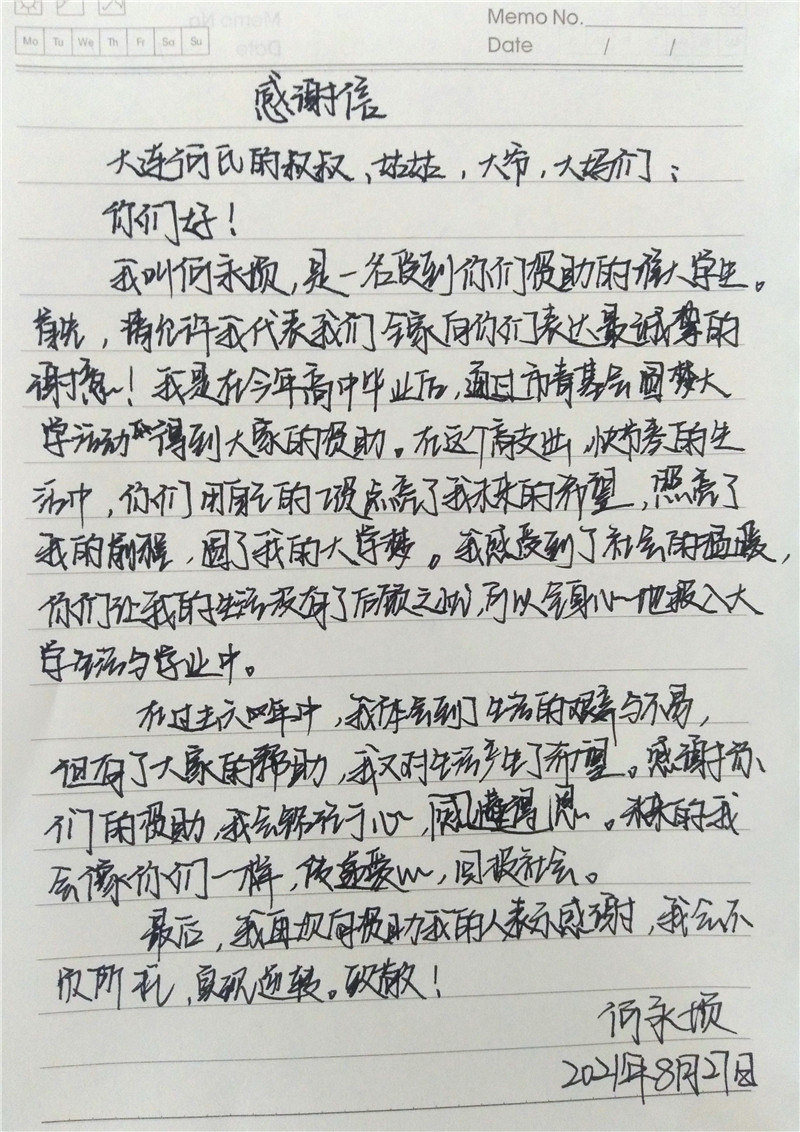 Memo No.
Mo Tu We Th Fr Sa Su
Date / /
感谢信
大连何氏的叔叔、姑姑，大爷，大妈们：
你们好！
我叫何永顷，是一名受到你们资助的准大学生。
首先，请允许我代表我们全家向你们表达最诚挚的
谢意！我是在今年高中毕业后，通过市青基会圆梦大
学活动得到大家的资助。在这个高支出，快节奏的生
活中，你们用自己的资点亮了我未来的希望，照亮了
我的前程，圆了我的大学梦。我感受到了社会的温暖，
你们让我的生活没有了后顾之忧，可以全身心地投入大
学生活与学业中。
在过去六四年中，我体会到了生活的艰辛与不易，
但有了大家的帮助，我又对生活产生了希望。感谢你
们的资助，我会铭记于心，懂得恩。未来的我
会像你们一样，传递爱心，回报社会。
最后，我再次向资助我的人表示感谢，我会不
负所托，实现逆转。致敬！
何永顷
2021年8月27日